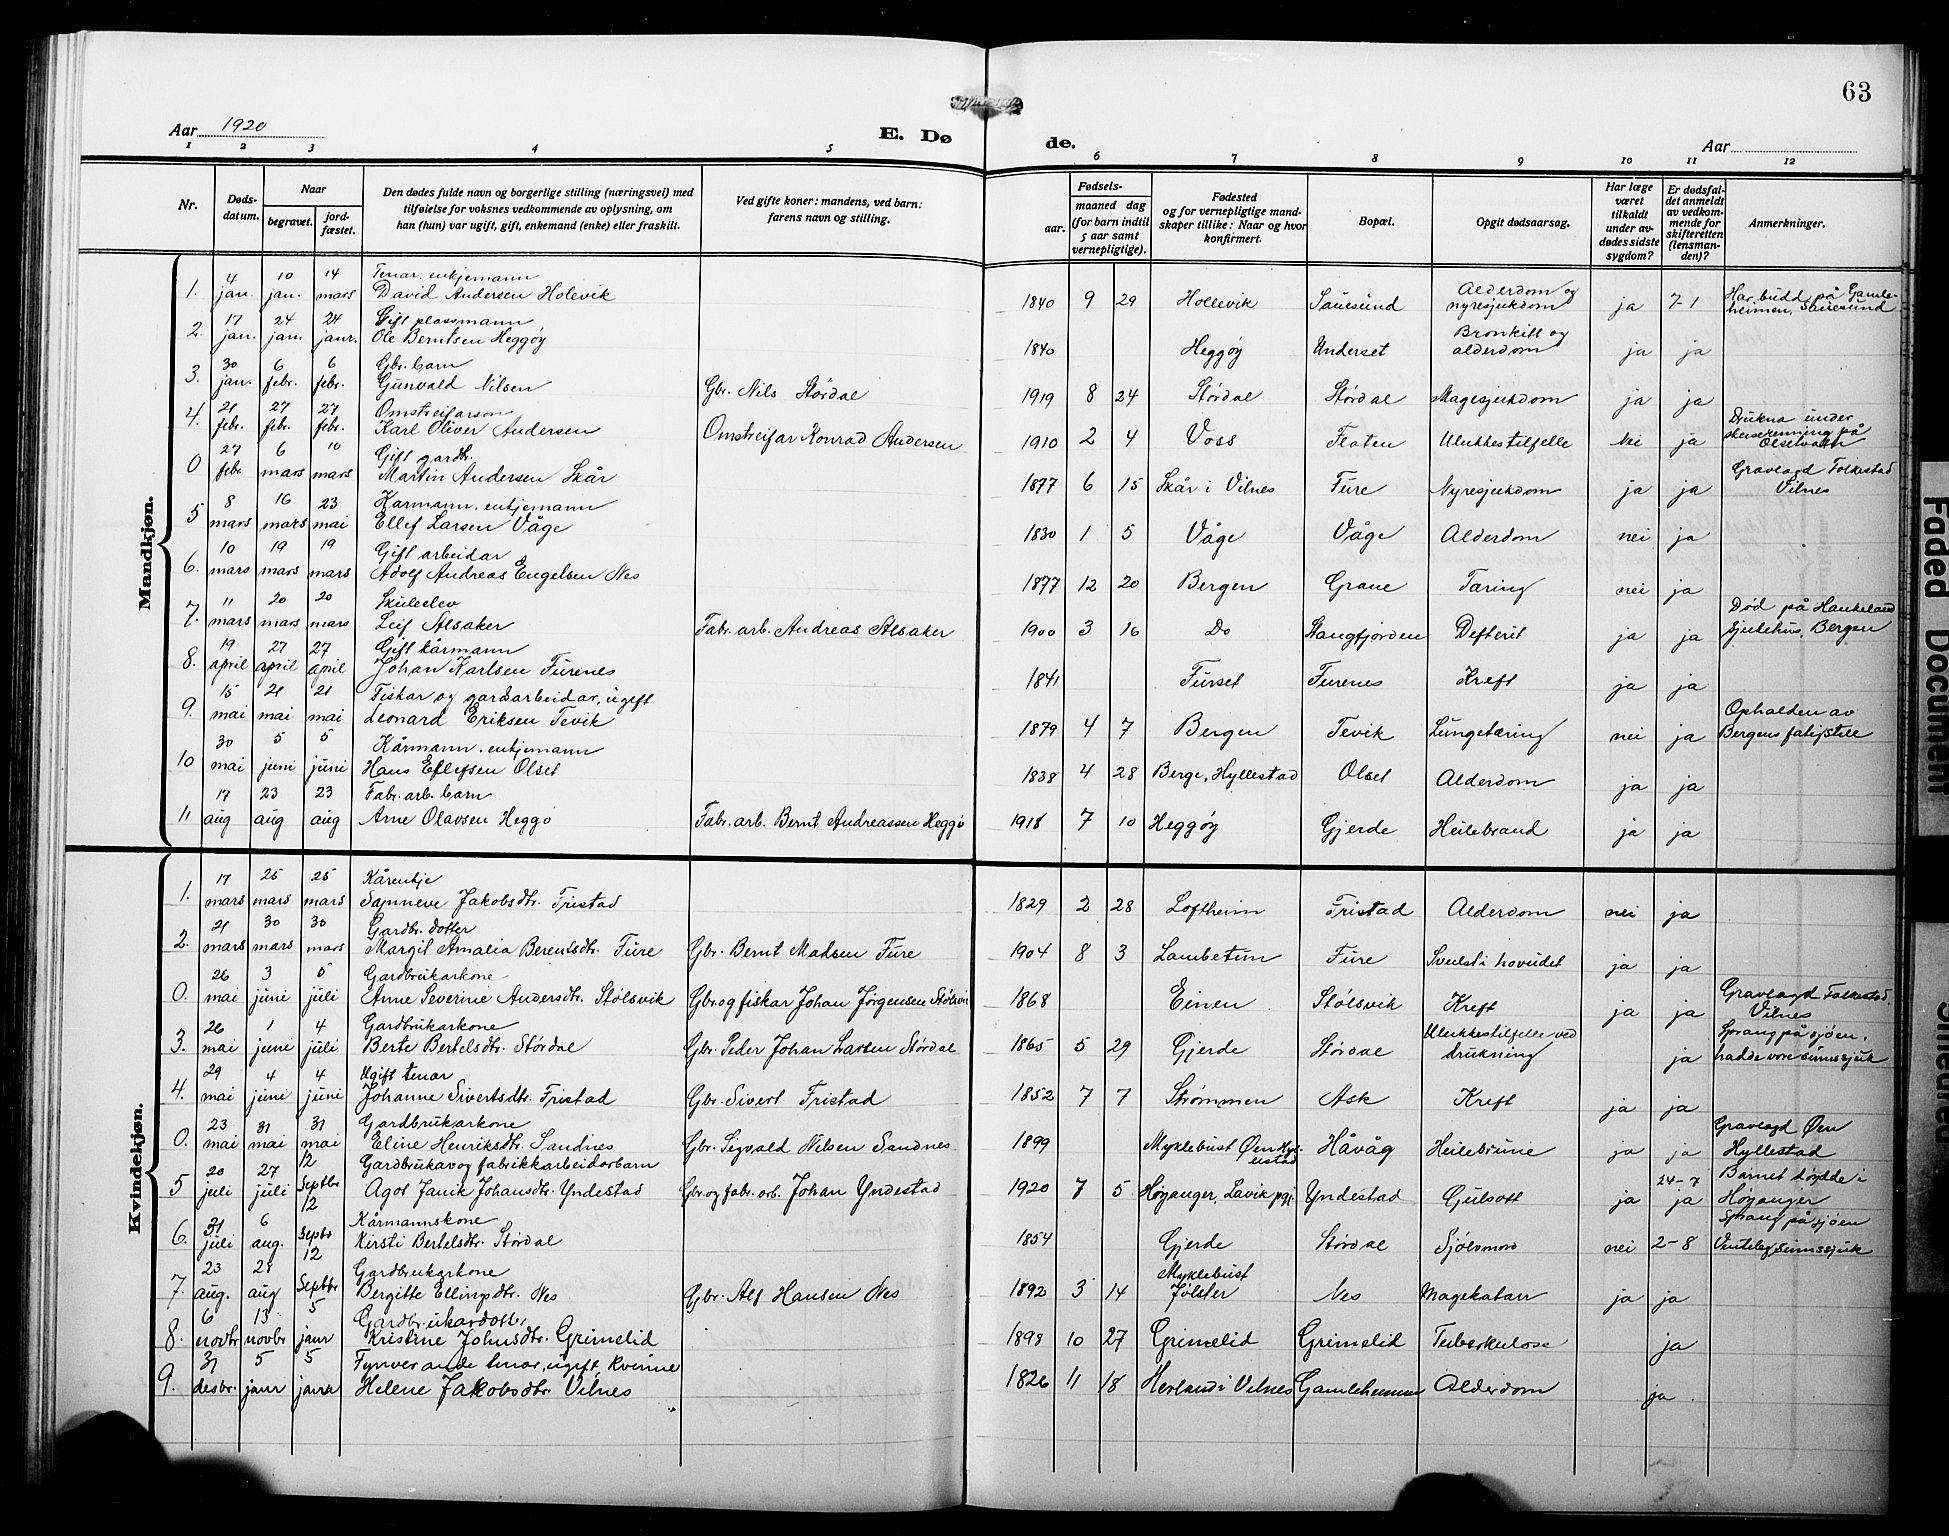 63
Aar 1920
E. Dø
de.
Aar
1 2 3 4 5 6 7 8 9 10 11 12
Nr.
Døds-
datum.
Naar
begravet.
jord-
fæstet.
Den dødes fulde navn og borgerlige stilling (næringsvei) med
tilføielse for voksnes vedkommende av oplysning, om
han (hun) var ugift, gift, enkemand (enke) eller fraskilt.
Ved gifte koner: mandens, ved barn:
farens navn og stilling.
Fødsels-
aar.
maaned dag
(for barn indtil
5 aar samt
vernepligtige).
Fødested
og for vernepligtige mand-
skaper tillike: Naar og hvor
konfirmert.
Bopæl.
Opgit dødsaarsag.
Har læge
været
tilkaldt
under av-
dødes sidste
sygdom?
Er dødsfal-
det anmeldt
av vedkom-
mende for
skifteretten
(lensman-
den)?
Anmerkninger.
Mandkjøn.
1. 4 jan. 10 jan. 14 mars Tenar, enkjemann
David Andersen Holevik 1840 9 29 Hollevik Sauesund Alderdom og nyresjukdom ja 7-1 Har budd på Gamle-
heimen, Sauesund
2. 17 jan. 24 jan. 24 janr. Gift plassmann
Ole Berntsen Heggøy 1840 Heggøy Underset Bronkitt og alderdom ja ja
3. 30 jan. 6 febr. 6 febr. Gbr. barn
Gunvald Nilsen Gbr. Nils Størdal 1919 8 24 Størdal Størdal Magesjukdom ja ja
4. 21 febr. 27 febr. 27 febr. Omstreifarson
Karl Oliver Andersen Omstreifar Konrad Andersen 1910 2 4 Voss Flaten Ulukkestilfelle Nei ja Drukna under
skeiserenning på
Olsetvatn
0 27 febr. 6 mars 10 mars Gift gardbr.
Martin Andersen Skår 1877 6 15 Skår i Vilnes Fure Nyresjukdom ja ja Gravlagd Folkestad
Vilnes
5 8 mars 16 mars 23 mai Karmann, enkjemann
Ellef Larsen Våge 1830 1 5 Våge Våge Alderdom nei ja
6. 10 mars 19 mars 19 mars Gift arbeidar
Adolf Andreas Engelsen Nes 1877 12 20 Bergen Grane Tæring nei ja
7. 11 mars 20 mars 20 mars Skuleelev
Leif Alsaker Fabr. arb. Andreas Alsaker 1900 3 16 Do Stangfjorden Defterit ja ja Død på Haukeland
sjukehus, Bergen
8. 19 april 27 april 27 april Gift kårmann
Johan Karlsen Furenes 1841 Furset Furenes Kreft ja ja
9. 15 mai 21 mai 21 mai Fiskar og gardsarbeidar, ugift
Leonard Eriksen Tevik 1879 4 7 Bergen Tevik Lungetæring nei ja Ophalden av
Bergens fatigstell
10 30 mai 5 juni 5 juni Kårmann, enkjemann
Hans Eflefsen Olset 1838 4 28 Berge, Hyllestad Olset Alderdom ja ja
11 17 aug 23 aug 23 aug Fabr. arb. barn
Arne Olavsen Heggø Fabr. arb. Bernt Andreassen Heggø 1918 7 10 Heggøy Gjerde Heilebrand ja ja
Kvindekjøn.
1. 17 mars 25 mars 25 mars Kårenkje
Synneve Jakobsdtr. Fristad 1829 2 28 Loftheim Fristad Alderdom nei ja
2. 21 mars 30 mars 30 mars Gardbr. dotter
Margit Amalia Berentsdtr. Fure Gbr. Bernt Madsen Fure 1904 8 3 Lambetun Fure Svulst i hovudet ja ja
0. 26 mai 3 juni 5 juli Gardbrukarkone
Anne Severine Andersdtr. Stølsvik Gbr. og fiskar Johan Jørgensen Stølsvik 1868 Einen Stølsvik Kreft ja ja Gravlagd Folkestad
Vilnes
3. 26 mai 1 juni 4 juli Gardbrukarkone
Berte Bertelsdtr. Størdal Gbr. Peder Johan Larsen Størdal 1865 5 29 Gjerde Størdal Ulukkestilfelle ved drukning ja Sprang på sjøen,
hadde vore sinnssjuk
4. 29 mai 4 juni 4 juni Ugift tenar
Johanne Sivertsdtr. Fristad Gbr. Sivert Fristad 1852 7 7 Strømmen Ask Kreft ja ja
0. 23 mai 31 mai 31 mai Gardbrukarkone
Eline Henriksdtr. Sandnes Gbr. Sigvald Nilsen Sandnes 1899 Myklebust Øen Hyllestad Håvåg Heilebrune ja ja Gravlagd Øen
Hyllestad
5 20 juli 27 juli 12 Septbr Gardbrukar og fabrikkarbeidarbarn
Agot Janik Johansdtr. Yndestad Gbr. og fabr. arb. Johan Yndestad 1920 7 5 Høyanger, Lavik pgj. Yndestad Gulsott ja 24-7 ja Barnet døydde i
Høyanger
6. 31 juli 6 aug. 12 Septbr Kårmannskone
Kirsti Bertelsdtr. Størdal 1854 Gjerde Størdal Sjølvmord nei 2-8 Sprang på sjøen
Venteleg sinnssjuk
7. 23 aug. 28 aug 12 Septbr Gardbrukarkone
Bergitte Ellingsdtr. Nes Gbr. Alf Hansen Nes 1892 3 14 Myklebust Jølster Nes Magekatarr ja ja
8. 6 novbr 13 novbr 5 janr Gardbrukardotter
Kristine Johnsdtr. Grimelid 1898 10 27 Grimelid Grimelid Tuberkulose ja
9. 31 desbr. 5 janr 5 janr Fyrverande tenar, ugift kvinne
Helene Jakobsdtr. Vilnes 1826 11 18 Herland i Vilnes Gamleheimen Alderdom ja
Faded Document